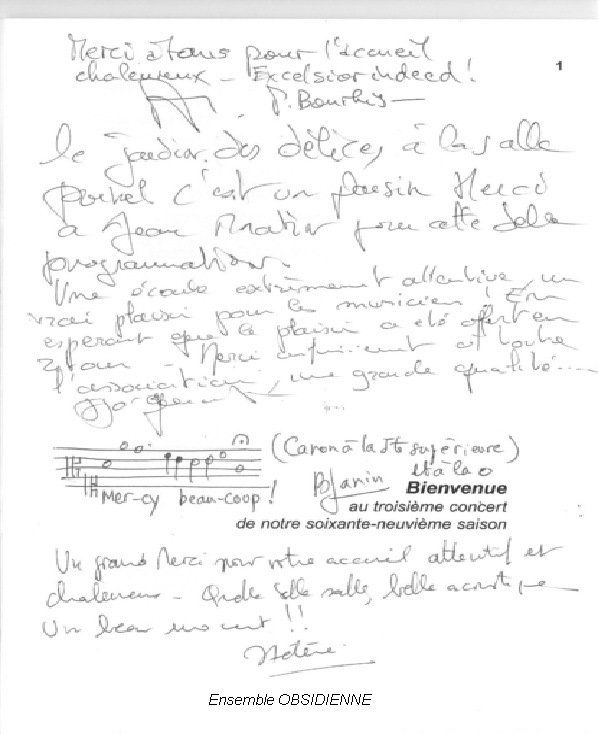 Merci à tous pour l'accueil
chaleureux – Excelsior indeed !
1
P. Bourhis
le jardin des délices à la salle
c'est un plaisir Merci
à Jean pour cette belle
programmation
Une écoute extrêmement attentive, un
vrai plaisir pour le musicien ! En
espérant que le plaisir a été offert en
retour – Merci infiniment à toute
l'association, une grande qualité....
(Canon à la 5te supérieure)
et à la 8
Mer-cy beau-coop !
BJanin
Bienvenue
au troisième concert
de notre soixante-neuvième saison
Un grand Merci pour votre accueil attentif et
chaleureux – Quelle belle salle, belle acoustique
Un beau moment !!
Ensemble OBSIDIENNE